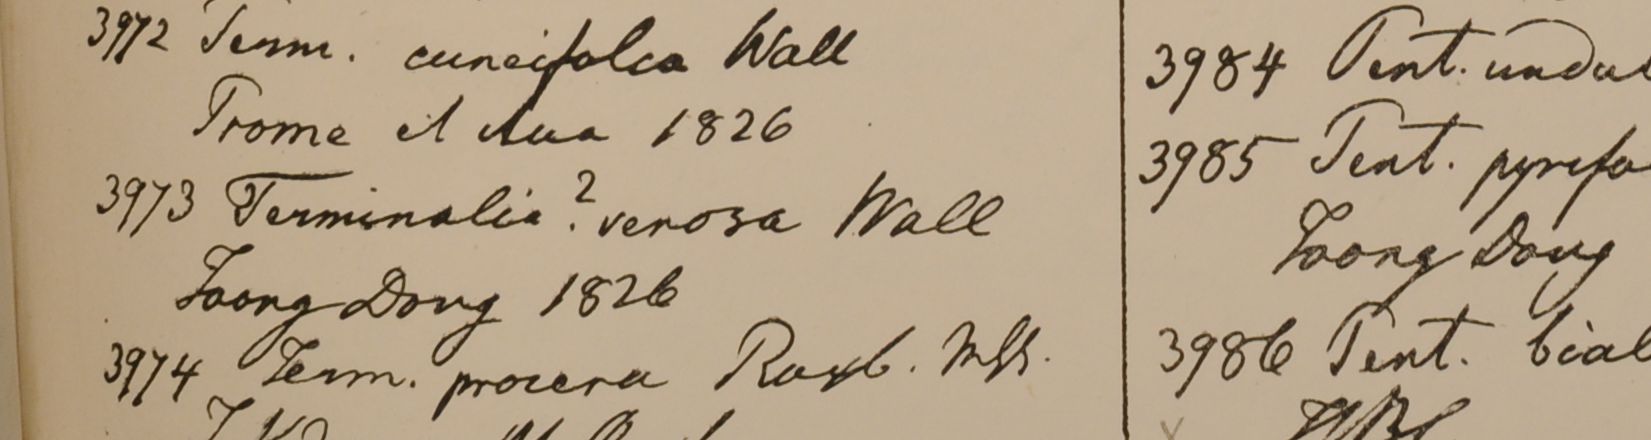 3972 Term. cuneifolia Wall
Prome et Ava 1826
3973 Terminalia? venosa Wall
Toong Dong 1826
3974 Term. procera Roxb. Mss.
3984 Pent. undul
3985 Pent. pyrifo
Toong Dong
3986 Pent. bial